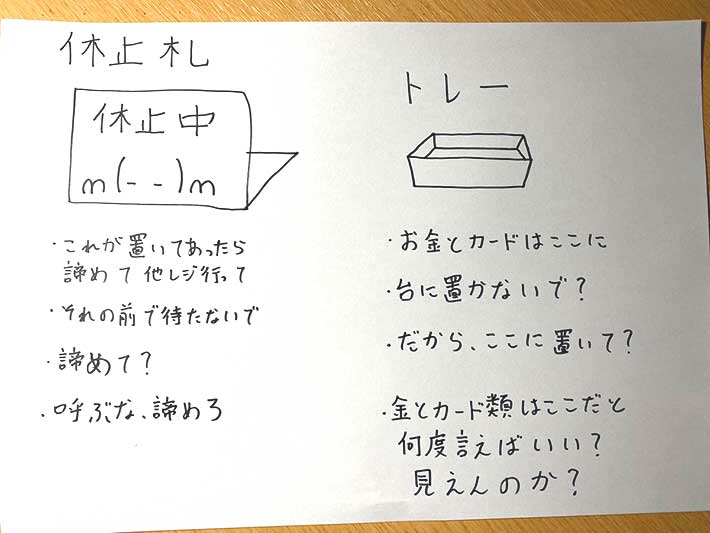 休止札
休止中
m(- -)m
・これが置いてあったら
諦めて他レジ行って
・それの前で待たないで
・諦めて?
・呼ぶな、諦めろ
トレー
・お金とカードはここに
・台に置かないで?
・だから、ここに置いて?
・金とカード類はここだと
何度言えばいい?
見えんのか?